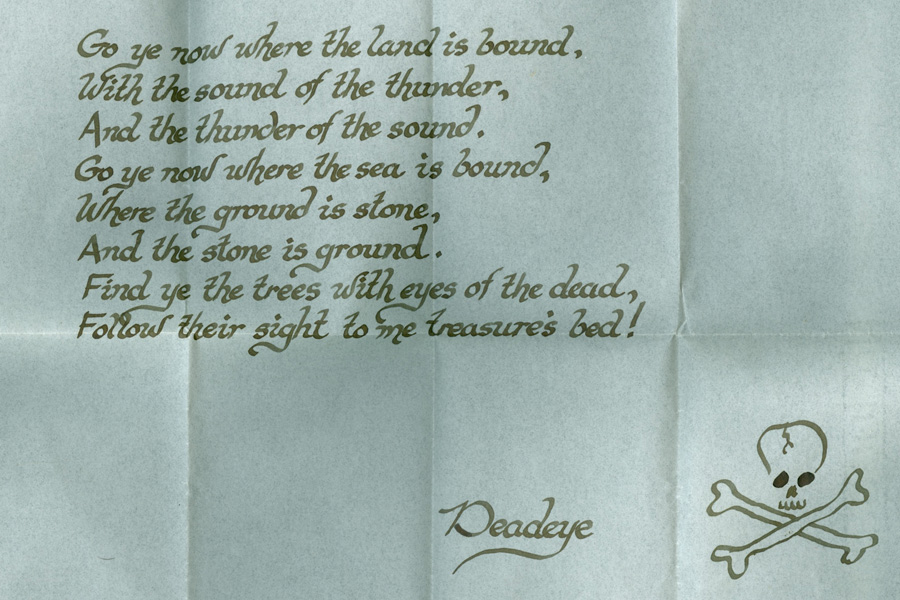 Go ye now where the land is bound,
With the sound of the thunder,
And the thunder of the sound.
Go ye now where the sea is bound,
Where the ground is stone,
And the stone is ground.
Find ye the trees with eyes of the dead,
Follow their sight to me treasure's bed!
Deadeye